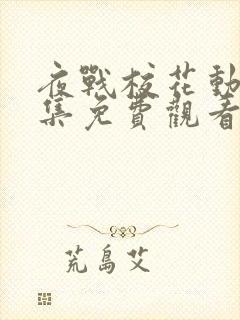 夜戰校花動
集免費觀看
荒島艾